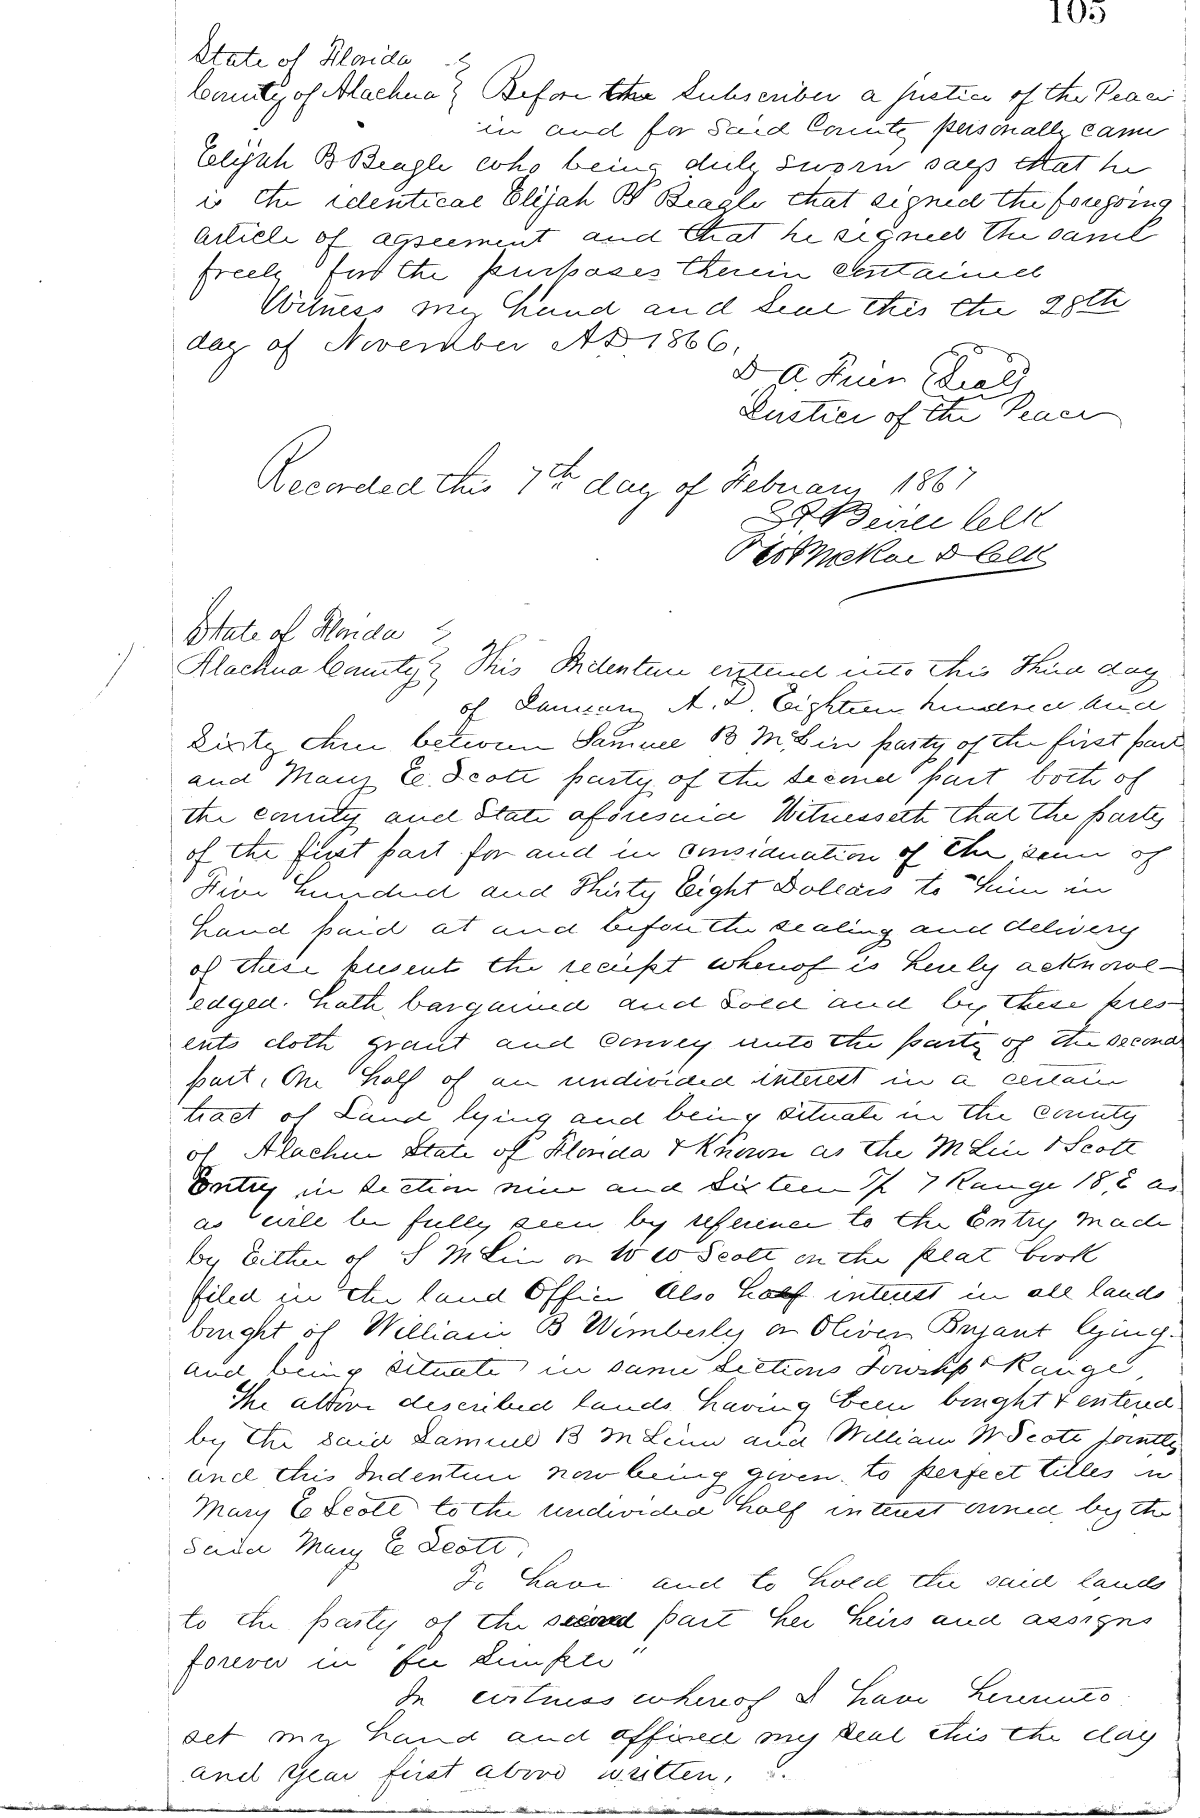 105
State of Florida
County of Alachua } Before the Subscriber a justice of the Peace
in and for Said County personally came
Elijah B Beagle who being duly sworn says that he
is the identical Elijah B Beagle that signed the foregoing
article of agreement and that he signed the same
freely for the purposes therein contained
Witness my hand and Seal this the 28th
day of November AD 1866,
D A (Seal)
Justice of the Peace
Recorded this 7th day of February 1867
Clk
McRae D Clk
State of Florida
Alachua County } This Indenture entered into this Third day
of January A. D. Eighteen hundred and
Sixty three between Samuel B McLin party of the first part
and Mary E. Scott party of the second part both of
the county and State aforesaid Witnesseth that the party
of the first part for and in consideration of the sum of
Five hundred and Thirty Eight Dollars to him in
hand paid at and before the sealing and delivery
of these presents the receipt whereof is hereby acknowl-
edged. hath bargained and Sold and by these pres-
ents doth grant and convey unto the party of the second
part, One half of an undivided interest in a certain
tract of Land lying and being situate in the county
of Alachua State of Florida & Known as the McLin & Scott
Entry in Section nine and Sixteen T/ 7 Range 18, E as
as will be fully seen by reference to the Entry made
by Either of S McLin or W W Scott on the plat book
filed in the land Office Also half interest in all lands
bought of William B Wimberly or Oliver Bryant lying.
and being situate in same Sections Township & Range,
The above described lands having been bought & entered
by the said Samuel B McLinn and William W Scott jointly
and this Indenture now being given to perfect titles in
Mary E Scott to the undivided half interest owned by the
said Mary E Scott,
To have and to hold the said lands
to the party of the second part her heirs and assigns
forever in "fee Simple"
In witness whereof I have hereunto
set my hand and affixed my seal this the day
and year first above written,